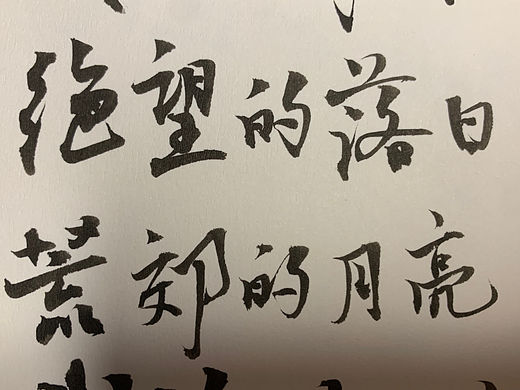 绝望的落日
荒郊的月亮